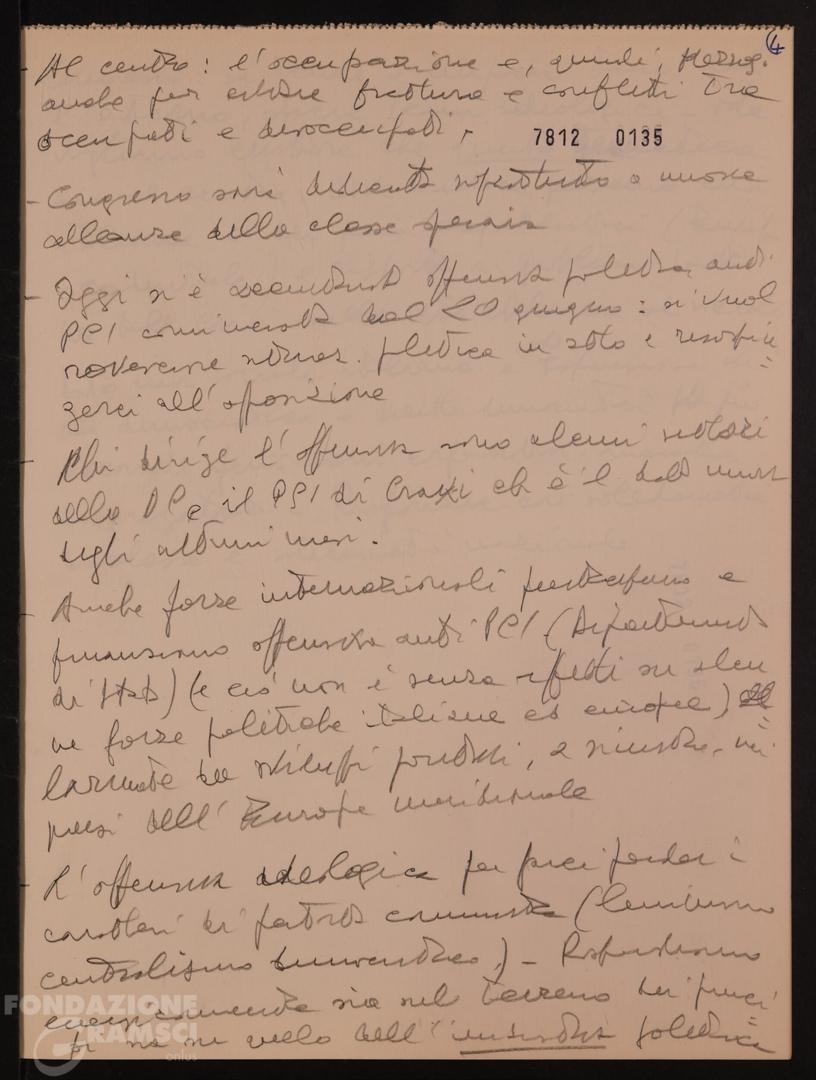 4
- Al centro: l'occupazione e, quindi, Mezzog.
anche per evitare frattura e conflitti tra
occupati e disoccupati.
7812 0135
- Congresso sarà dedicato soprattutto a nuove
alleanze della classe operaia
- Oggi s'è accentuata offensiva politica anti
PCI cominciata dal 20 giugno: si vuol
rovesciare situaz. politica in atto e respin=
gerci all'opposizione
- Chi dirige l'offensiva sono alcuni settori
della DC e il PSI di Craxi ch'è il dato nuovo
degli ultimi mesi.
- Anche forze internazionali partecipano e
finanziano offensiva anti PCI (Dipartimento
di Stato) (e ciò non è senza effetti su alcu
ne forze politiche italiane ed europee) al=
larmate da sviluppi positivi, a sinistra, nei
paesi dell'Europa meridionale
- L'offensiva ideologica per farci perdere i
caratteri di partito comunista (leninismo
centralismo democratico) - Rispondiamo
sia nel terreno dei princi=
pi sia su quello dell'iniziativa politica
FONDAZIONE
GRAMSCI
onlus